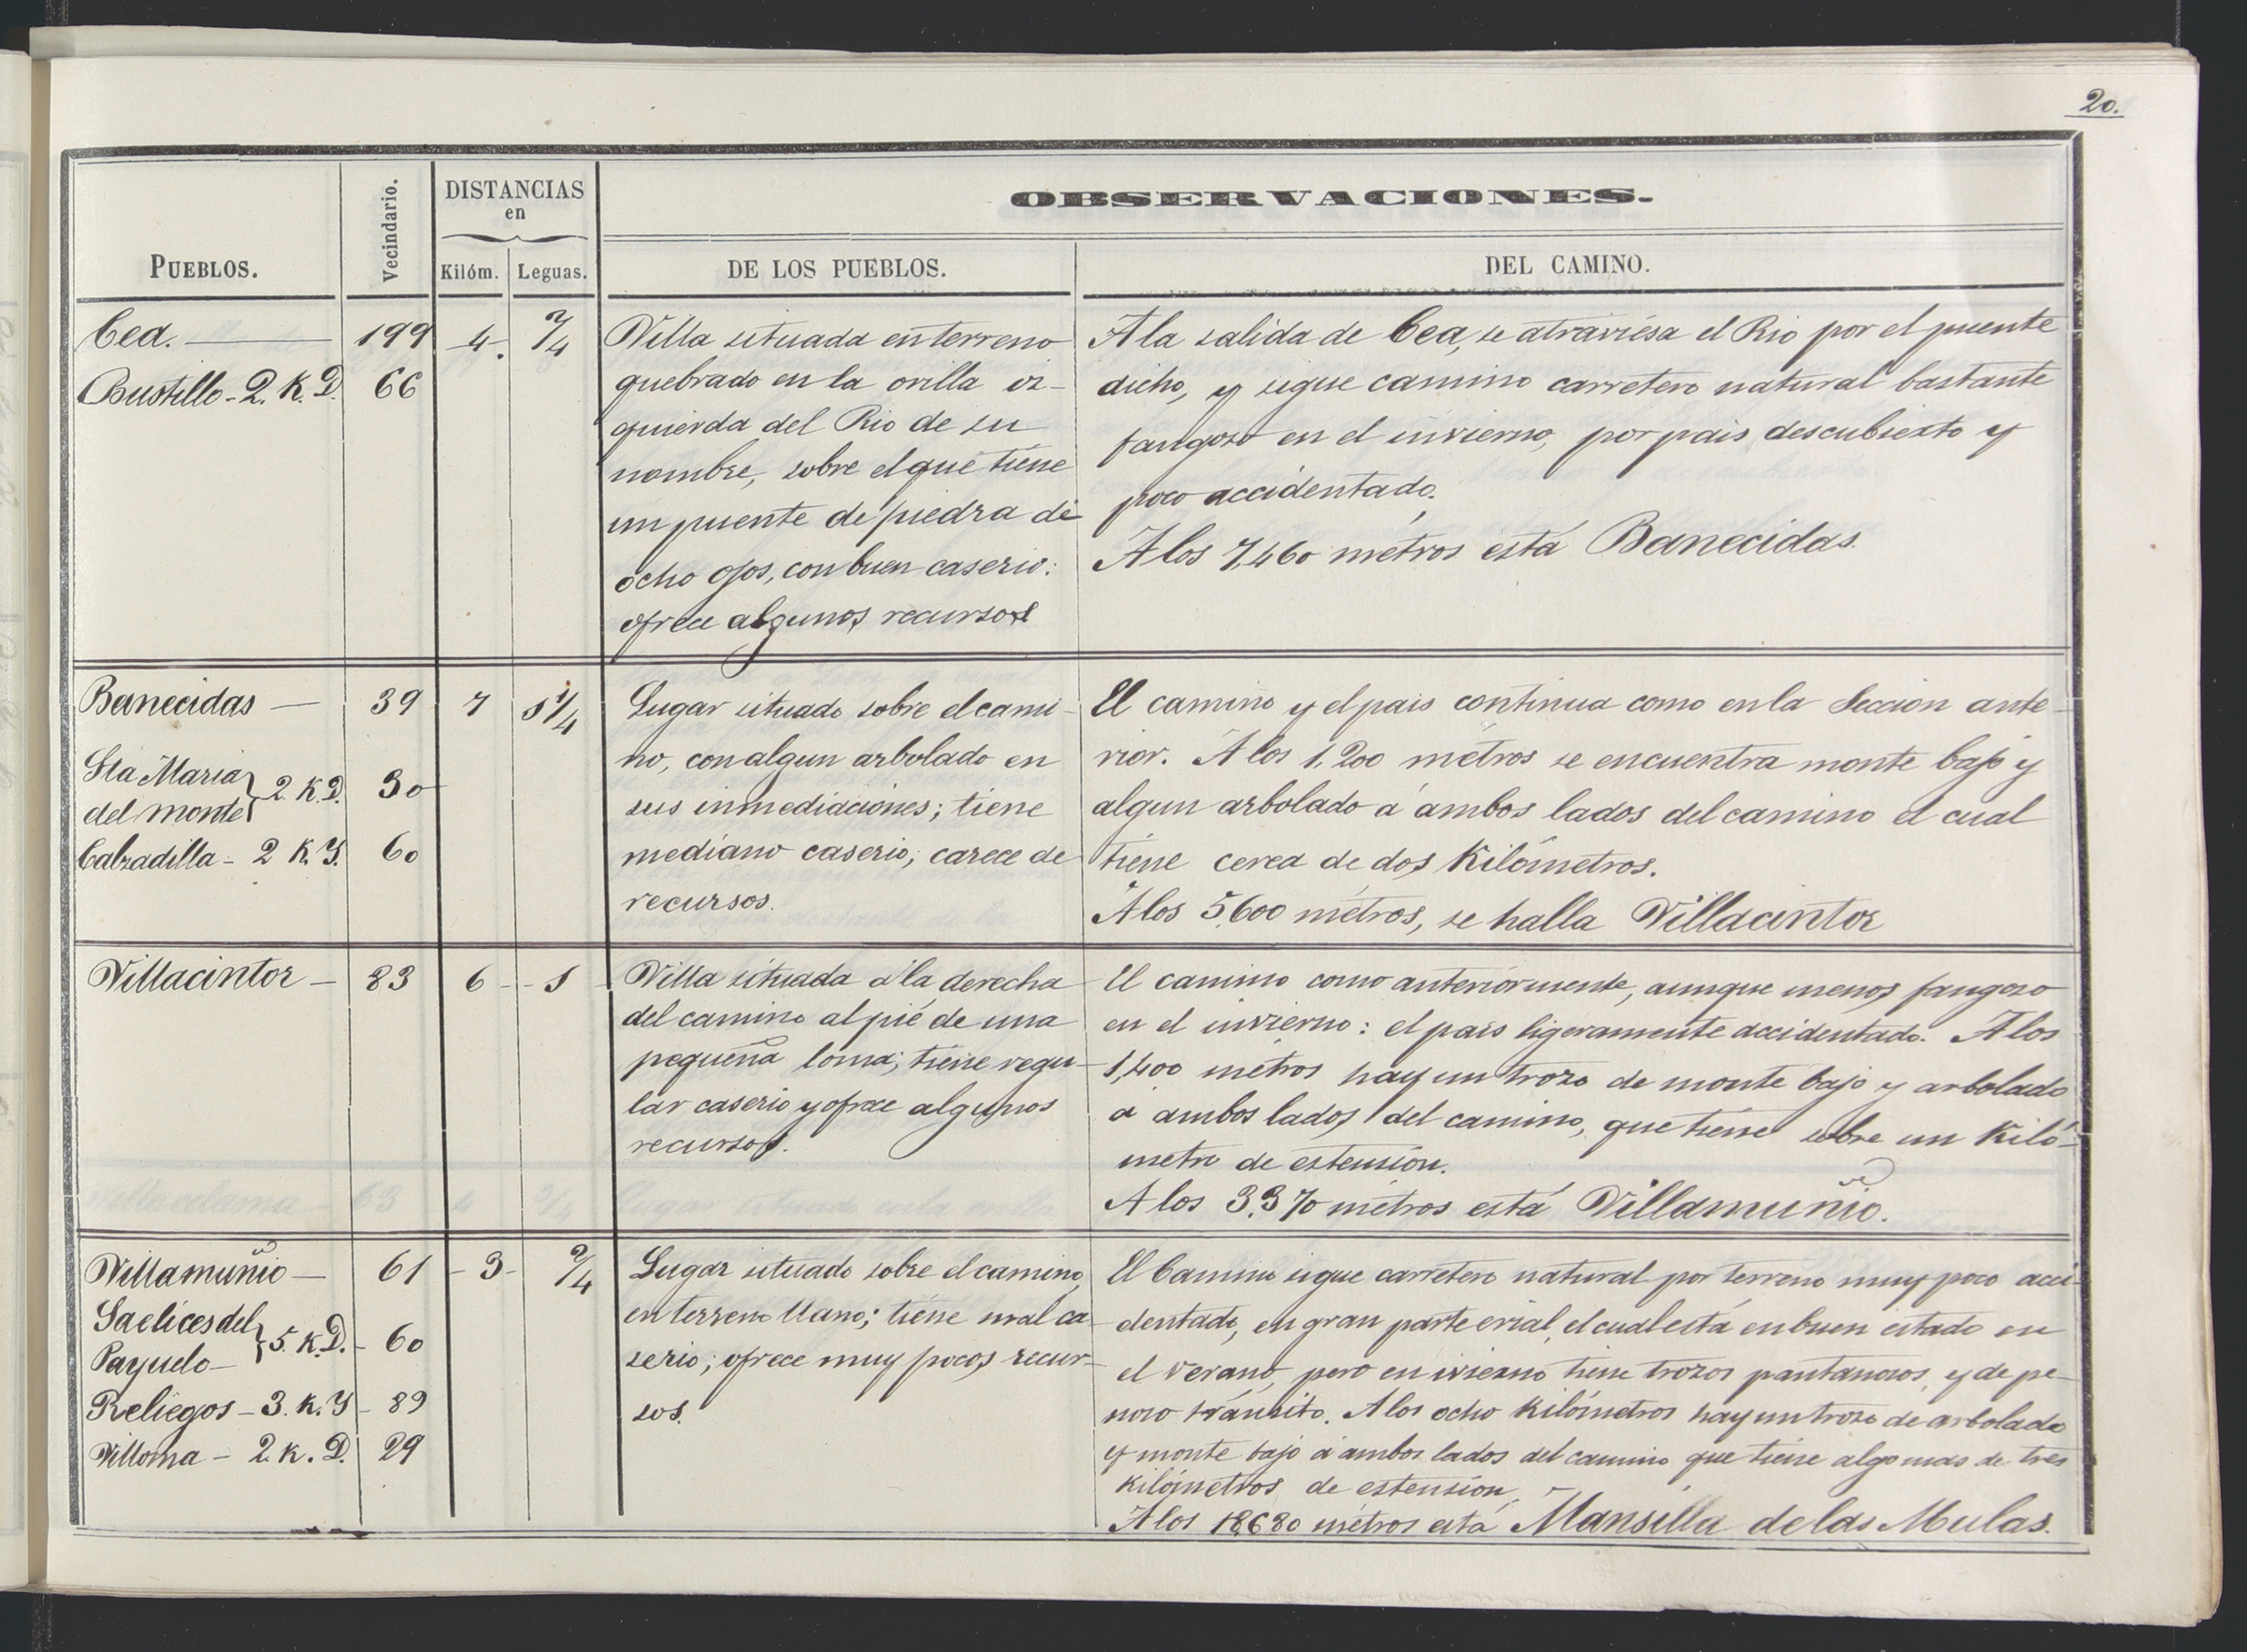 20.
PUEBLOS.
Vecindario.
DISTANCIAS
en
Kilóm. Leguas.
OBSERVACIONES.
DE LOS PUEBLOS.
DEL CAMINO.
Cea. 199 4.
Bustillo - 2. K. D. 66
Villa situada en terreno
quebrado en la orilla iz-
quierda del Rio de su
nombre, sobre el que tiene
un puente de piedra de
ocho ojos, con buen caserio:
ofrece algunos recursos
A la salida de Cea, se atraviesa el Rio por el puente
dicho, y sigue camino carretero natural bastante
fangoso en el invierno, por pais descubierto y
poco accidentado.
A los 7,460 métros está Banecidas.
Banecidas — 39 7 1 1/4
Sta Maria
del monte } 2. K. D. 30
Calzadilla - 2 K. Y. 60
Lugar situado sobre el cami-
no, con algun arbolado en
sus inmediaciones; tiene
mediano caserio; carece de
recursos.
El camino y el pais continua como en la Seccion ante-
rior. A los 1,200 métros se encuentra monte bajo y
algun arbolado á ambos lados del camino el cual
tiene cerca de dos Kilómetros.
A los 5,600 métros, se halla Villacintor
Villacintor — 83 6 - - 1
Villa situada á la derecha
del camino al pié de una
pequeña loma; tiene regu-
lar caserio y ofrece algunos
recursos.
El camino como anteriormente, aunque menos fangoso
en el invierno: el pais ligeramente accidentado. A los
1,400 métros hay un trozo de monte bajo y arbolado
á ambos lados del camino, que tiene sobre un Kiló-
metro de estension.
A los 3,370 métros está Villamuñio.
Villamuñio — 61 - 3 -
Saelices del
Payuelo — } 5. K. D. - 60
Reliegos - 3. K. Y - 89
Villoma - 2. K. D. 29
Lugar situado sobre el camino,
en terreno llano; tiene mal ca-
serio; ofrece muy pocos recur-
sos.
El Camino sigue carretero natural por terreno muy poco acci-
dentado, en gran parte erial, el cual está en buen estado en
el verano, pero en ivierno tiene trozos pantanosos, y de pe-
noso tránsito. A los ocho Kilómetros hay un trozo de arbolado
y monte bajo á ambos lados del camino que tiene algo mas de tres
Kilómetros de estension,
A los 18,680 métros está Mansilla de las Mulas.